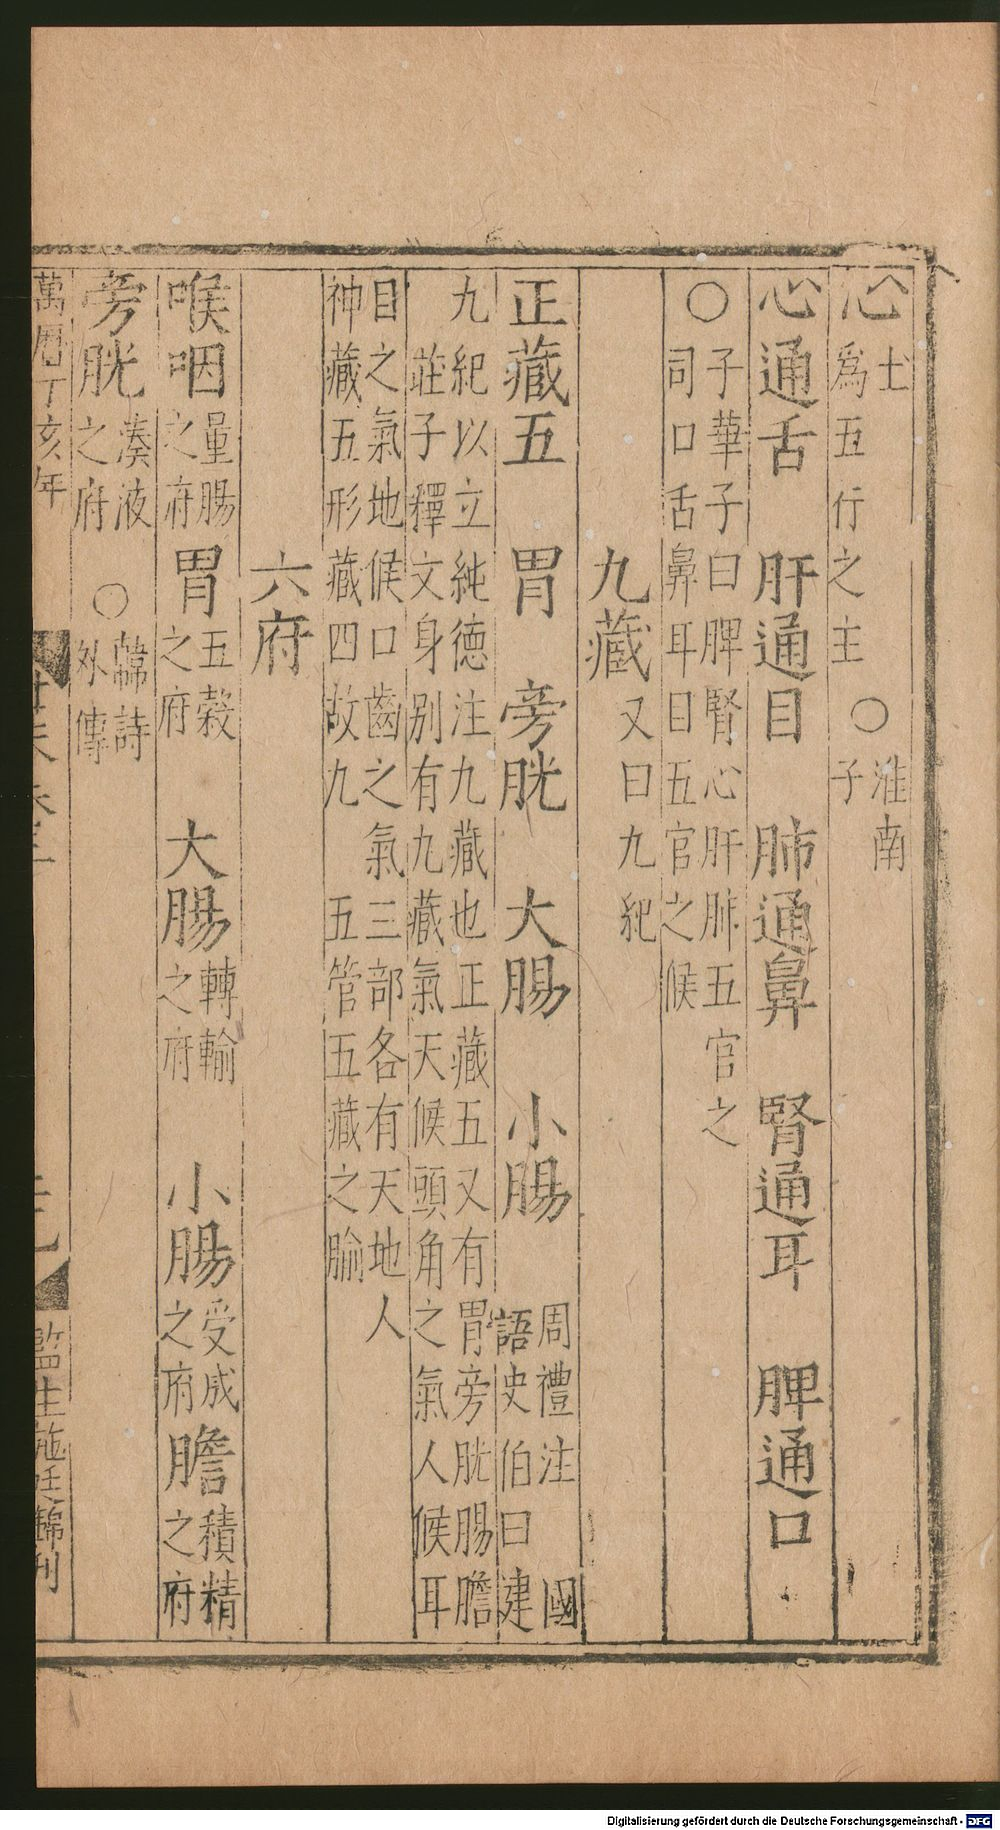 心土
爲五行之主 〇淮南
子
心通舌 肝通目 肺通鼻 腎通耳 脾通口
〇子華子曰脾腎心肝肺五官之
司口舌鼻耳目五官之候
九藏又曰九紀
正藏五 胃 旁胱 大腸 小腸 周禮注 國
語史伯曰建
九紀以立純德注九藏也正藏五又有胃旁胱腸膽
莊子釋文身别有九藏氣天候頭角之氣人候耳
目之氣地候口齒之氣三部各有天地人
神藏五形藏四故九 五管五藏之腧
六府
喉咽量腸
之府 胃五穀
之府 大腸轉輸
之府 小腸受成
之府 膽積精
之府
旁胱湊液
之府 〇韓詩
外傳
萬曆丁亥年
監生施廷錦刊
Digitalisierung gefördert durch die Deutsche Forschungsgemeinschaft - DFG